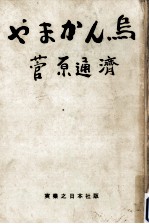 やまかん烏
菅原通濟
実業之日本社版